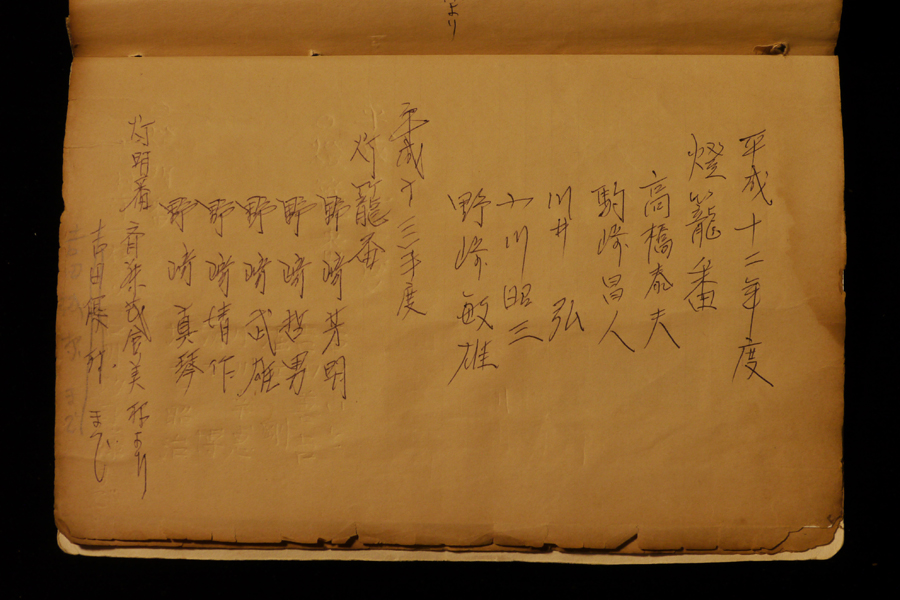 より
平成十二年度
燈籠番
高橋泰夫
駒崎昌人
川井 弘
小川昭三
野崎敏雄
平成十三年度
灯籠番
野崎芳明
野崎哲男
野崎武雄
野崎靖作
野崎真琴
灯明番 斉 美 様より
吉田 様 まで